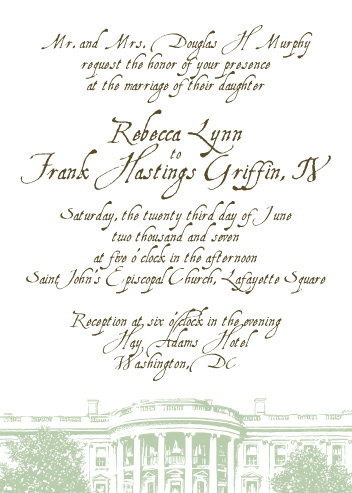 Mr. and Mrs. Douglas H Murphy
request the honor of your presence
at the marriage of their daughter
Rebecca Lynn
to
Frank Hastings Griffin, IV
Saturday, the twenty third day of June
two thousand and seven
at five o'clock in the afternoon
Saint John's Episcopal Church, Lafayette Square
Reception at six o'clock in the evening
Hay, Adams Hotel
Washington, DC